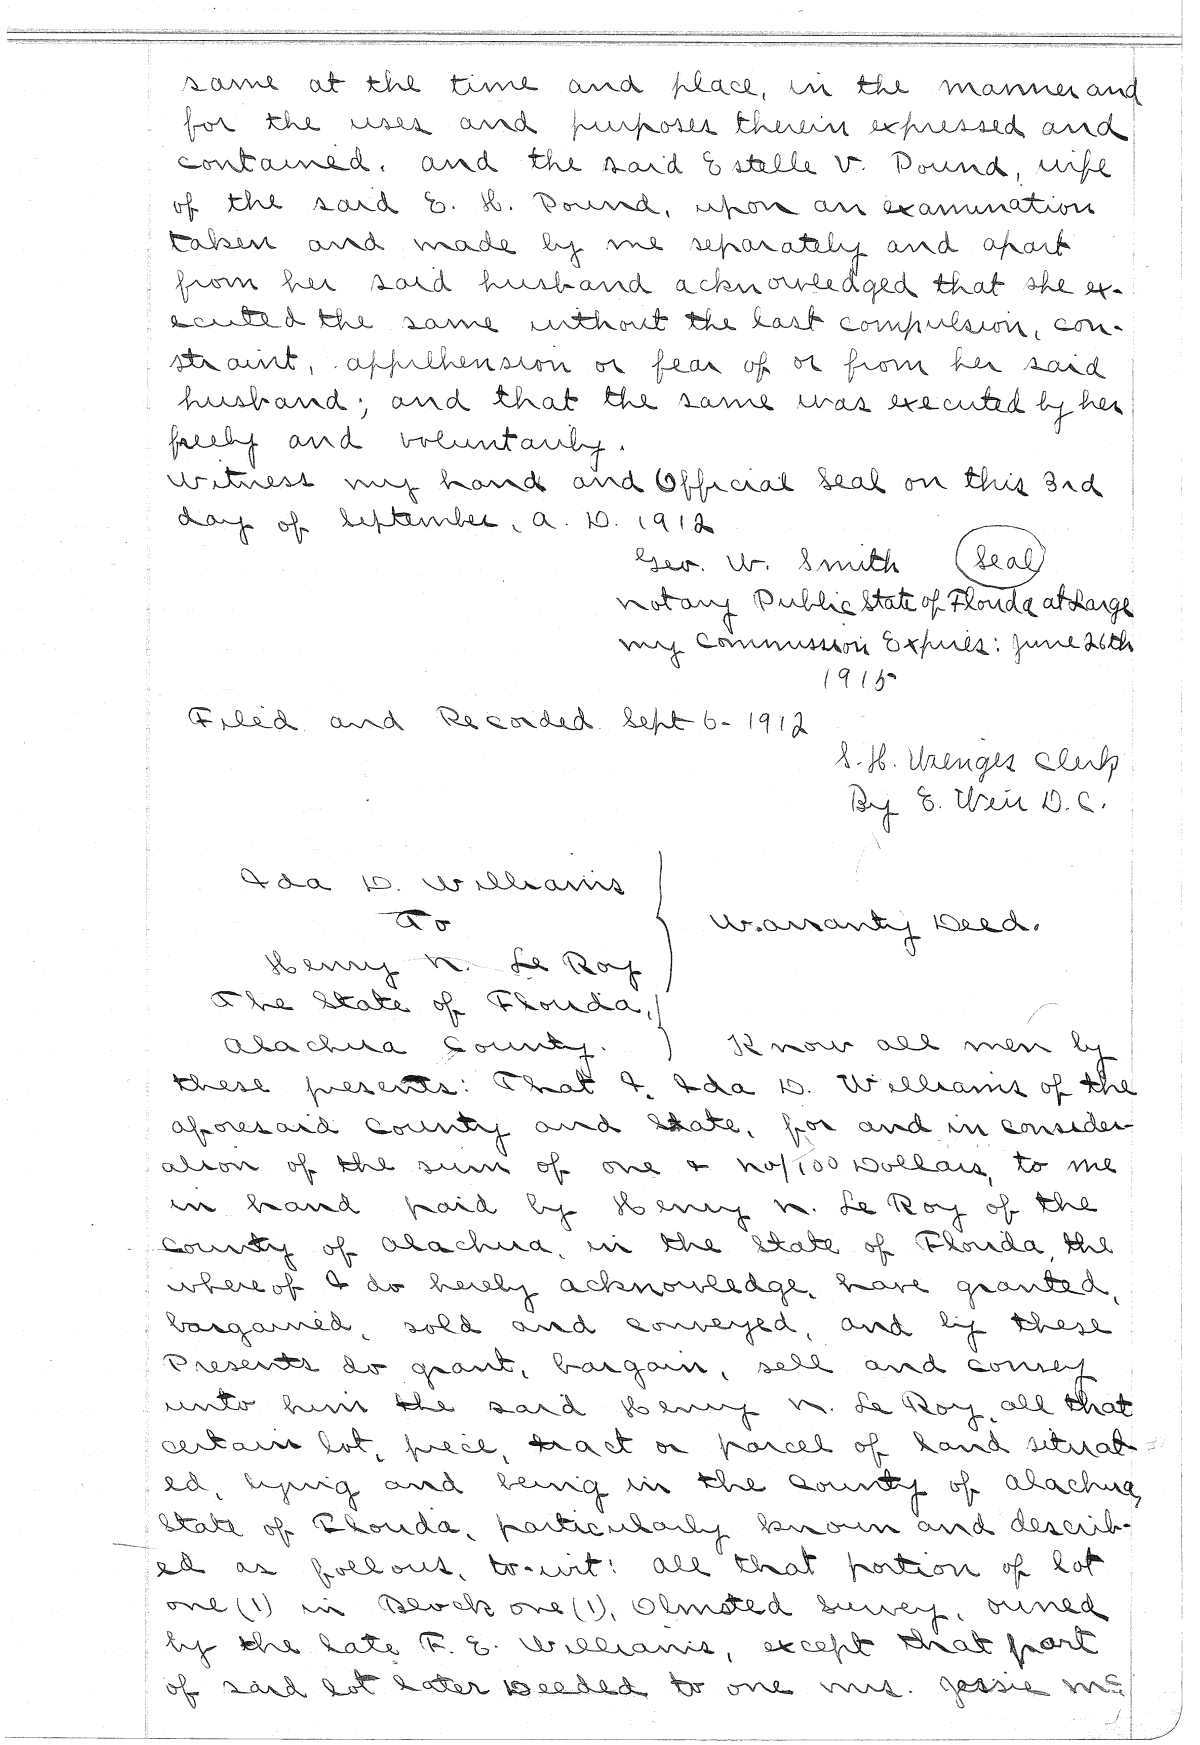 same at the time and place, in the manner and
for the uses and purposes therein expressed and
contained. and the said Estelle V. Pound, wife
of the said E. H. Pound, upon an examination
taken and made by me separately and apart
from her said husband acknowledged that she ex-
ecuted the same without the last compulsion, con-
straint, apprehension or fear of or from her said
husband; and that the same was executed by her
freely and voluntarily.
Witness my hand and Official Seal on this 3rd
day of September, A. D. 1912
Geo. W. Smith Seal
Notary Public State of Florida at Large
my Commission Expires: June 26th
1915
Filed and Recorded Sept 6- 1912
S. H. Wienges Clerk
By E. Weir D.C.
Ida D. Williams
To
Warranty Deed.
Henry N. Le Roy
The State of Florida,
Alachua County. Know all men by
these presents: That I, Ida D. Williams of the
aforesaid County and State, for and in consider-
ation of the sum of one & no/100 Dollars, to me
in hand paid by Henry N. Le Roy of the
County of Alachua, in the State of Florida, the
whereof I do hereby acknowledge, have granted,
bargained, sold and conveyed, and by these
Presents do grant, bargain, sell and convey
unto him the said Henry N. Le Roy, all that
certain lot, piece, tract or parcel of land situat-
ed, lying and being in the County of Alachua,
State of Florida, particularly known and describ-
ed as follows, to-wit: all that portion of lot
one (1) in Block one (1), Olmsted Survey, owned
by the late F. E. Williams, except that part
of said lot later Deeded to one Mrs. Jessie Mc